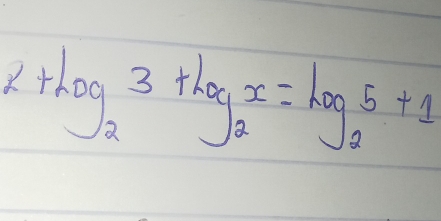 2 + Log₂ 3 + Log₂ x = Log₂ 5 + 1